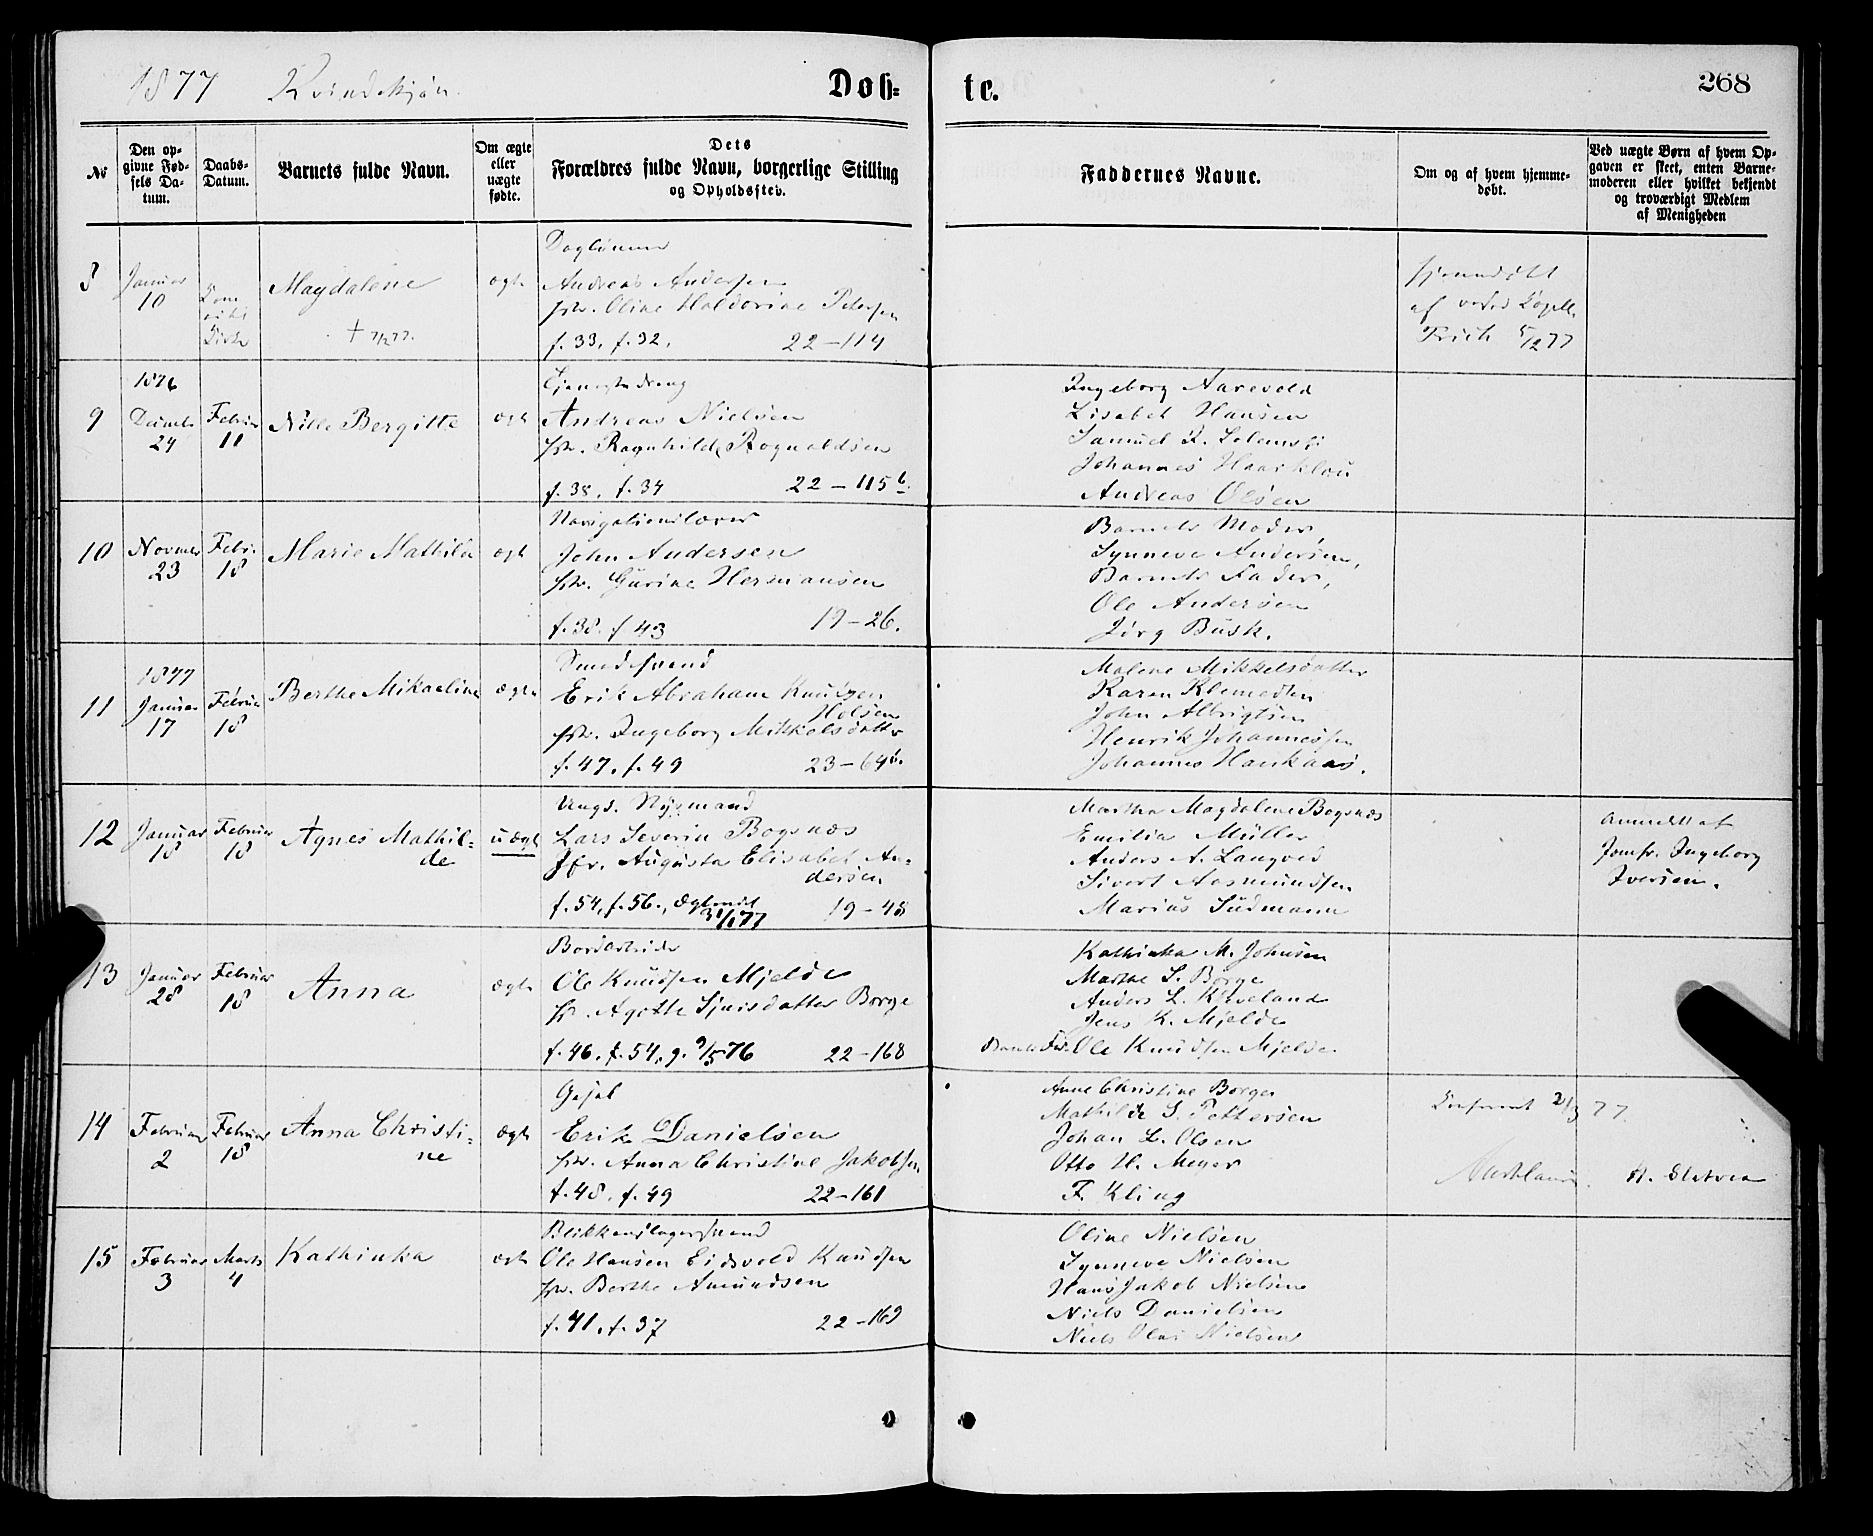 1877 Kvindekjøn.
Døb-
te.
268
No
Den op-
givne Fød-
sels Da-
tum.
Daabs-
Datum.
Barnets fulde Navn.
Om ægte
eller
uægte
fødte.
Dets
Forældres fulde Navn, borgerlige Stilling
og Opholdssted.
Faddernes Navne.
Om og af hvem hjemme-
døbt.
Ved uægte Børn af hvem Op-
gaven er skeet, enten Barne-
moderen eller hvilket bekjendt
og troværdigt Medlem
af Menigheden
8
Januar
10
Magdalene
ægte
Andreas Andersen
Oline Haldorine Petersen
f. 33, f. 32. 22-114
Hjemmedøbt
af
1877
9
1876
Decmbr
24
Februar
11
Nille Bergitte
ægt
Tjenestedreng
Andreas Nielsen
Ragnhilde Rognaldsen
f. 38, f. 34 22-115 b.
Ingeborg Aarevold
Lisabet Hansen
Samuel R.
Johannes Haarklou
Andreas Olsen
10
Novmbr
23
Febr.
18
Marie Mathilde
ægt
Navigationslærer
John Andersen
Gurine Hermansen
f. 38. f 43 19-26.
Barnets Moder,
Synneve Andersen,
Barnets Fader,
Ole Andersen
Jørg Busk.
11
1877
Januar
17
Februar
18
Berthe Mikaeline
ægte
Smedesvend
Erik Abraham Knudsen
Holsen
Ingeborg Mikkelsdatter
f. 47, f. 49 23-64
Malene Mikkelsdatter
Karen
John Albrigtsen
Henrik Johannessen
Johannes Haukaas.
12
Januar
18
Februar
18
Agnes Mathil-
de
uægt
Ungk.
Lars Severin Bognæs
Jfr. Augusta Elisabet An-
dersen
f. 54, f. 56., 19-48
Martha Magdalene Bognæs
Emilia Müller
Anders A. Langved
Sivert Aasmundsen
Marius Sudmann
Anmeldt af
Jomfr. Ingeborg
Iversen.
13
Januar
28
Februar
18
Anna
ægte
Ole Knudsen Mjelde
Agathe Sjursdatter Borge
f. 46, f. 54, g. 9/5 76 22-168
Kathinka M. Johnsen
Marthe S. Borge
Anders L.
Jens K. Mjelde
Ole Knudsen Mjelde
14
Februar
2
Februar
18
Anna Christi-
ne
ægte
Gesel
Erik Danielsen
Anna Christine Jakobsen
f. 48, f. 49 22-161
Anne Christine Borger
Mathilde S. Pettersen
Johan L. Olsen
Otto H. Meyer
F. Kling
21/3 77.
15
Februar
3
Marts
4
Kathinka
ægte
Blikkenslagersvend
Ole Hansen Eidsvold Knudsen
Berthe Amundsen
f. 41, f. 37 22-169
Oline Nielsen
Synneve Nielsen
Hans Jakob Nielsen
Niels Danielsen
Niels Olai Nielsen